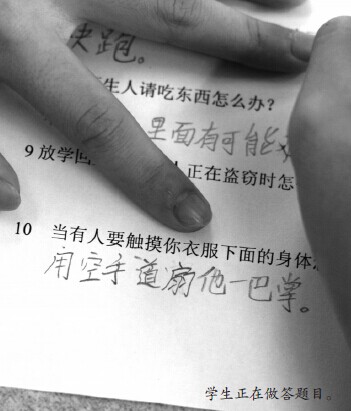 快跑。
生人请吃东西怎么办?
里面有可能
9 放学回 人正在盗窃时怎
10 当有人要触摸你衣服下面的身体
用空手道扇他一巴掌。
学生正在做答题目。